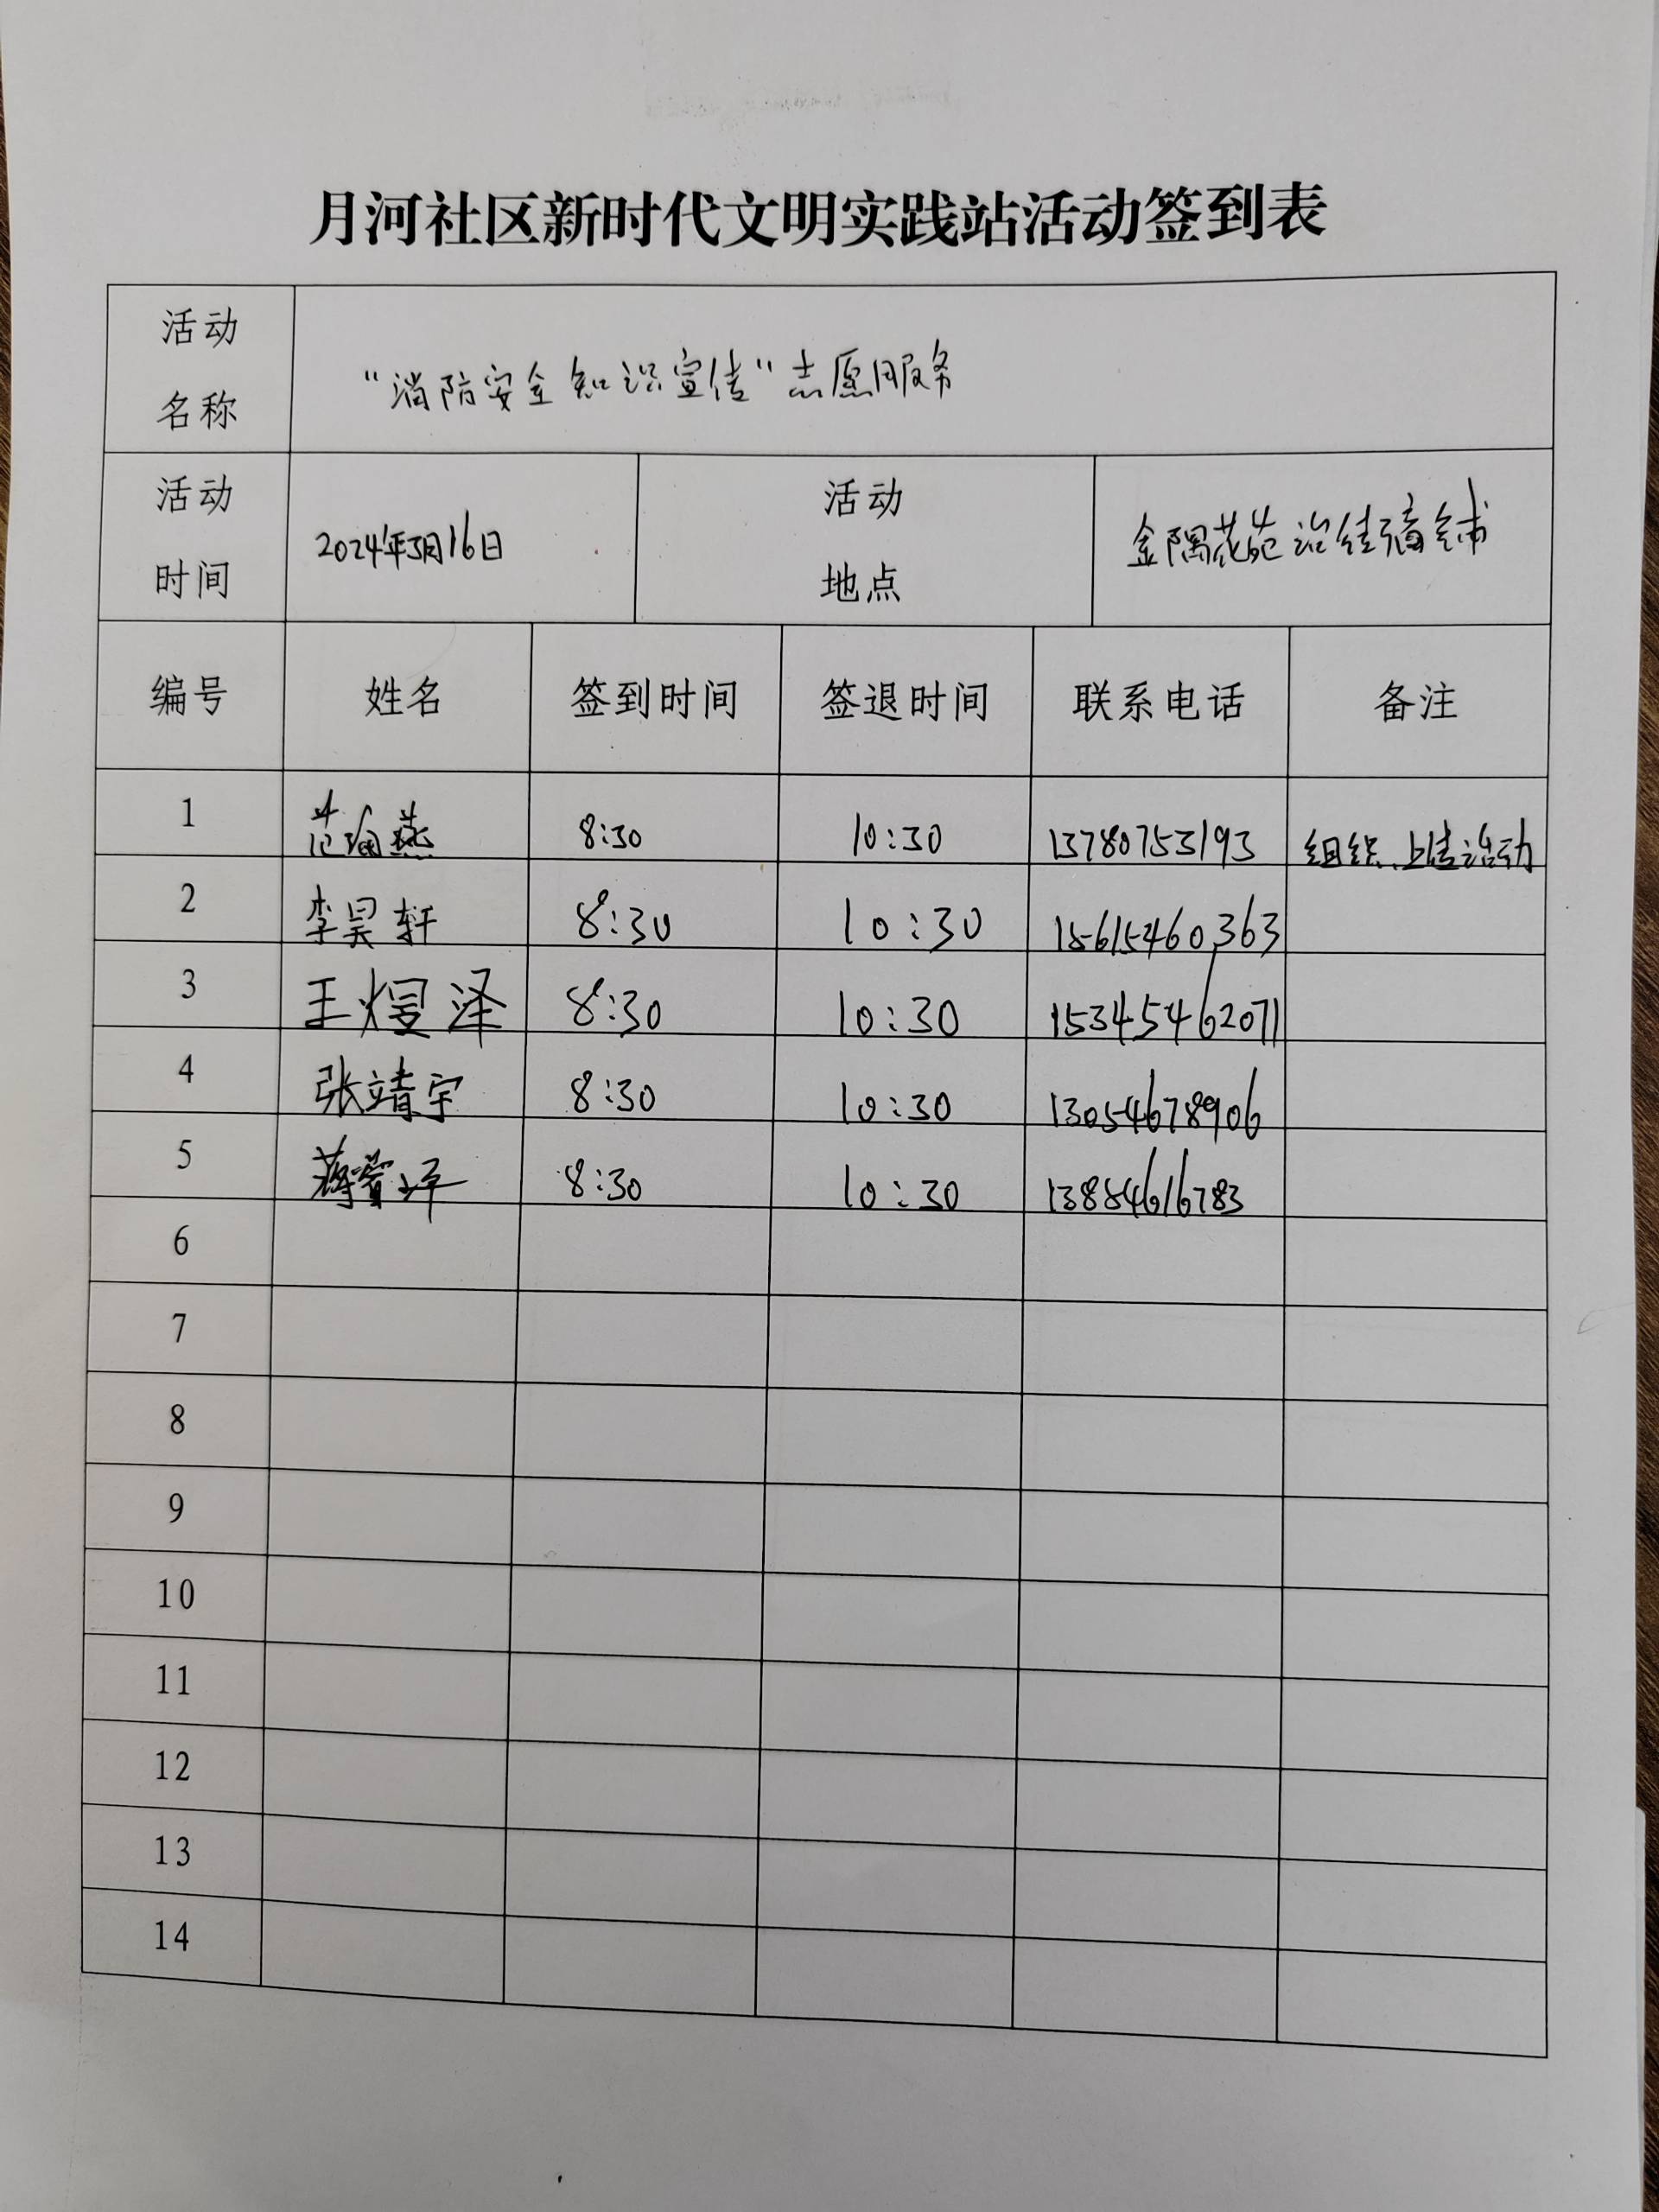 月河社区新时代文明实践站活动签到表
活动名称 “消防安全知识宣传”志愿服务
活动时间 2024年3月16日 活动地点 金隅花苑沿街商铺
编号 姓名 签到时间 签退时间 联系电话 备注
1 范 燕 8:30 10:30 13780753193 组织、上传活动
2 李昊轩 8:30 10:30 15615460363
3 王煜泽 8:30 10:30 15345462071
4 张靖宇 8:30 10:30 13054678906
5 蒋 8:30 10:30 13884616783
6
7
8
9
10
11
12
13
14